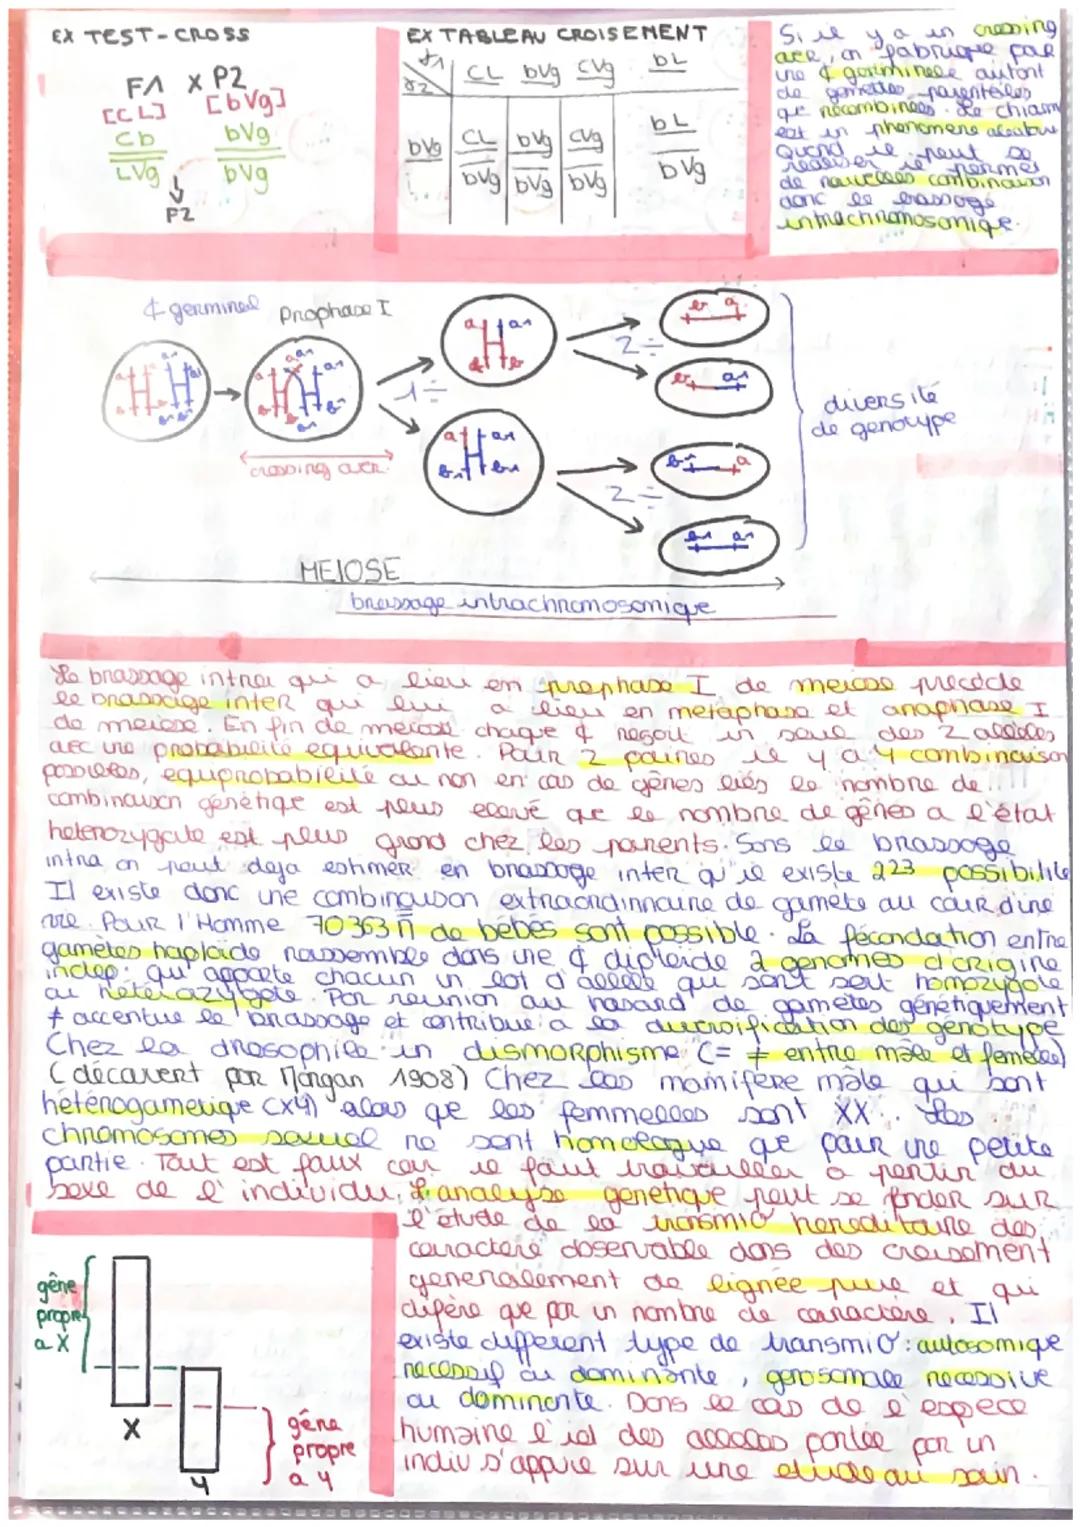 EX TEST-CROSS
F1 X P2
[CL] [bVg]
Cb bVg
LVg bVg
P2
EX TABLEAU CROISEMENT
γ1
γ2
CL bVg CVg bL
bVg CL bVg CVg bL
bVg bVg bVg bVg
Si il y a un crossing
over, on fabrique par
une ¢ germinale autant
de gamètes parentales
que recombinées Le chiasm
est un phénomène
Quand il peut se
realiser il permet
de nouvelles combinaison
donc le brassage
intrachromosomique.
¢ germinal
Prophase I
crossing over
1÷
2÷
2÷
diversité
de genotype
MEIOSE
brassage intrachromosomique
Le brassage intra qui a lieu en prophase I de meiose précède
le brassage inter qui lui a lieu en metaphase et anaphase I
de meiose. En fin de meiose chaque ¢ reçoit un seul des 2 allèles
avec une probabilité equivalente. Pour 2 paires il y a 4 combinaison
possibles, équiprobabilité ou non en cas de gènes liés le nombre de
combinaison génétique est plus elevé que le nombre de gènes a l'état
heterozygote est plus grand chez les parents. Sans le brassage
intra on peut deja estimer en brassage inter qu'il existe 2 23 possibilité
Il existe donc une combinaison extraordinnaire de gamète au cour d'une
vie. Pour l'Homme 70363 de bébés sont possible. La fécondation entre
gamètes haploide rassemble dans une ¢ diploide 2 genomes d'origine
indep. qu' apporte chacun un lot d'allele qui sont soit homozygote
ou heterozygote. Par reunion au hasard de gamètes génétiquement
≠ accentue le brassage et contribue a la diversification des génotype
Chez la drosophile un dismorphisme (= ≠ entre mâle et femelle)
(découvert par Morgan 1908) Chez les mamifère mâle qui sont
hétérogametique (XY) alors que les femmelles sont XX. Les
chromosomes sexuel ne sont homologue que pour une petite
partie. Tout est faux car il faut travailler a partir du
sexe de l'individu. L'analyse genetique peut se fonder sur
l'étude de la transmiO hereditaire des
caractère observable dans des croisement
generalement de lignée pure et qui
difère que par un nombre de caractère. Il
existe different type de transmiO : autosomique
recessif ou dominante, gonosomale recessive
ou dominante. Dans le cas de l'espece
humaine l'id des alleles portée par un
indiv s'appuie sur une etude au sein.
gène
propre
a X
X
Y
gène
propre
a Y